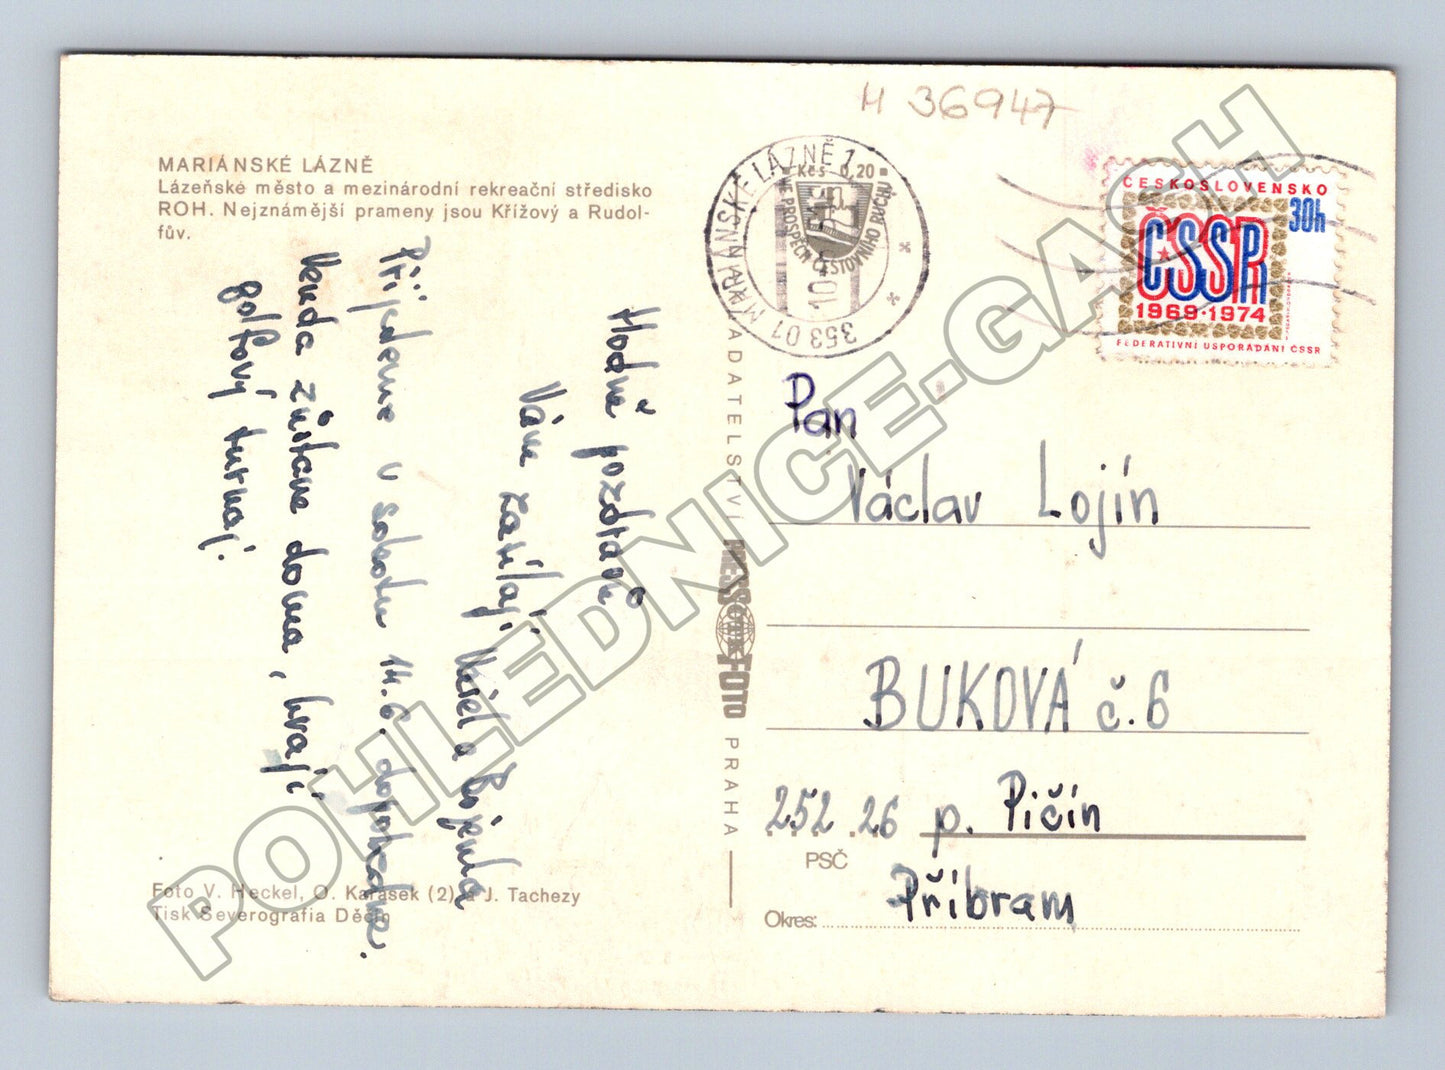 H 36947
MARIÁNSKÉ LÁZNĚ
Lázeňské město a mezinárodní rekreační středisko
ROH. Nejznámější prameny jsou Křížový a Rudol-
fův.
Hodně pozdravů
Vám zasílají Karel a Boženka
Přijedeme v sobotu 14.6. dopoledne.
Venda zůstane doma, hrají
golfový turnaj.
Foto V. Heckel, O. Karásek (2) a J. Tachezy
Tisk Severografia Děčín
VYDAVATELSTVÍ PRESSFOTO PRAHA
353 01 MARIÁNSKÉ LÁZNĚ 1
Kčs 0,20
VE PROSPĚCH CESTOVNÍHO RUCHU
ČESKOSLOVENSKO
30h
ČSSR
1969·1974
FEDERATIVNÍ USPOŘÁDÁNÍ ČSSR
Pan
Václav Lojín
BUKOVÁ č.6
252 26 p. Pičín
PSČ
Příbram
Okres:
POHLEDNICE-GACH